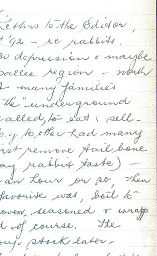 Letters to the Editor,
- re rabbits.
depression & maybe
Mallee region - north
- many families
the "underground
called, to eat & sell -
g to other had many
first remove tail bone
any rabbit taste) -
an hour or so, then
favourite was, boil to
oven, seasoned & wrapp
d of course. The
soup stock later.